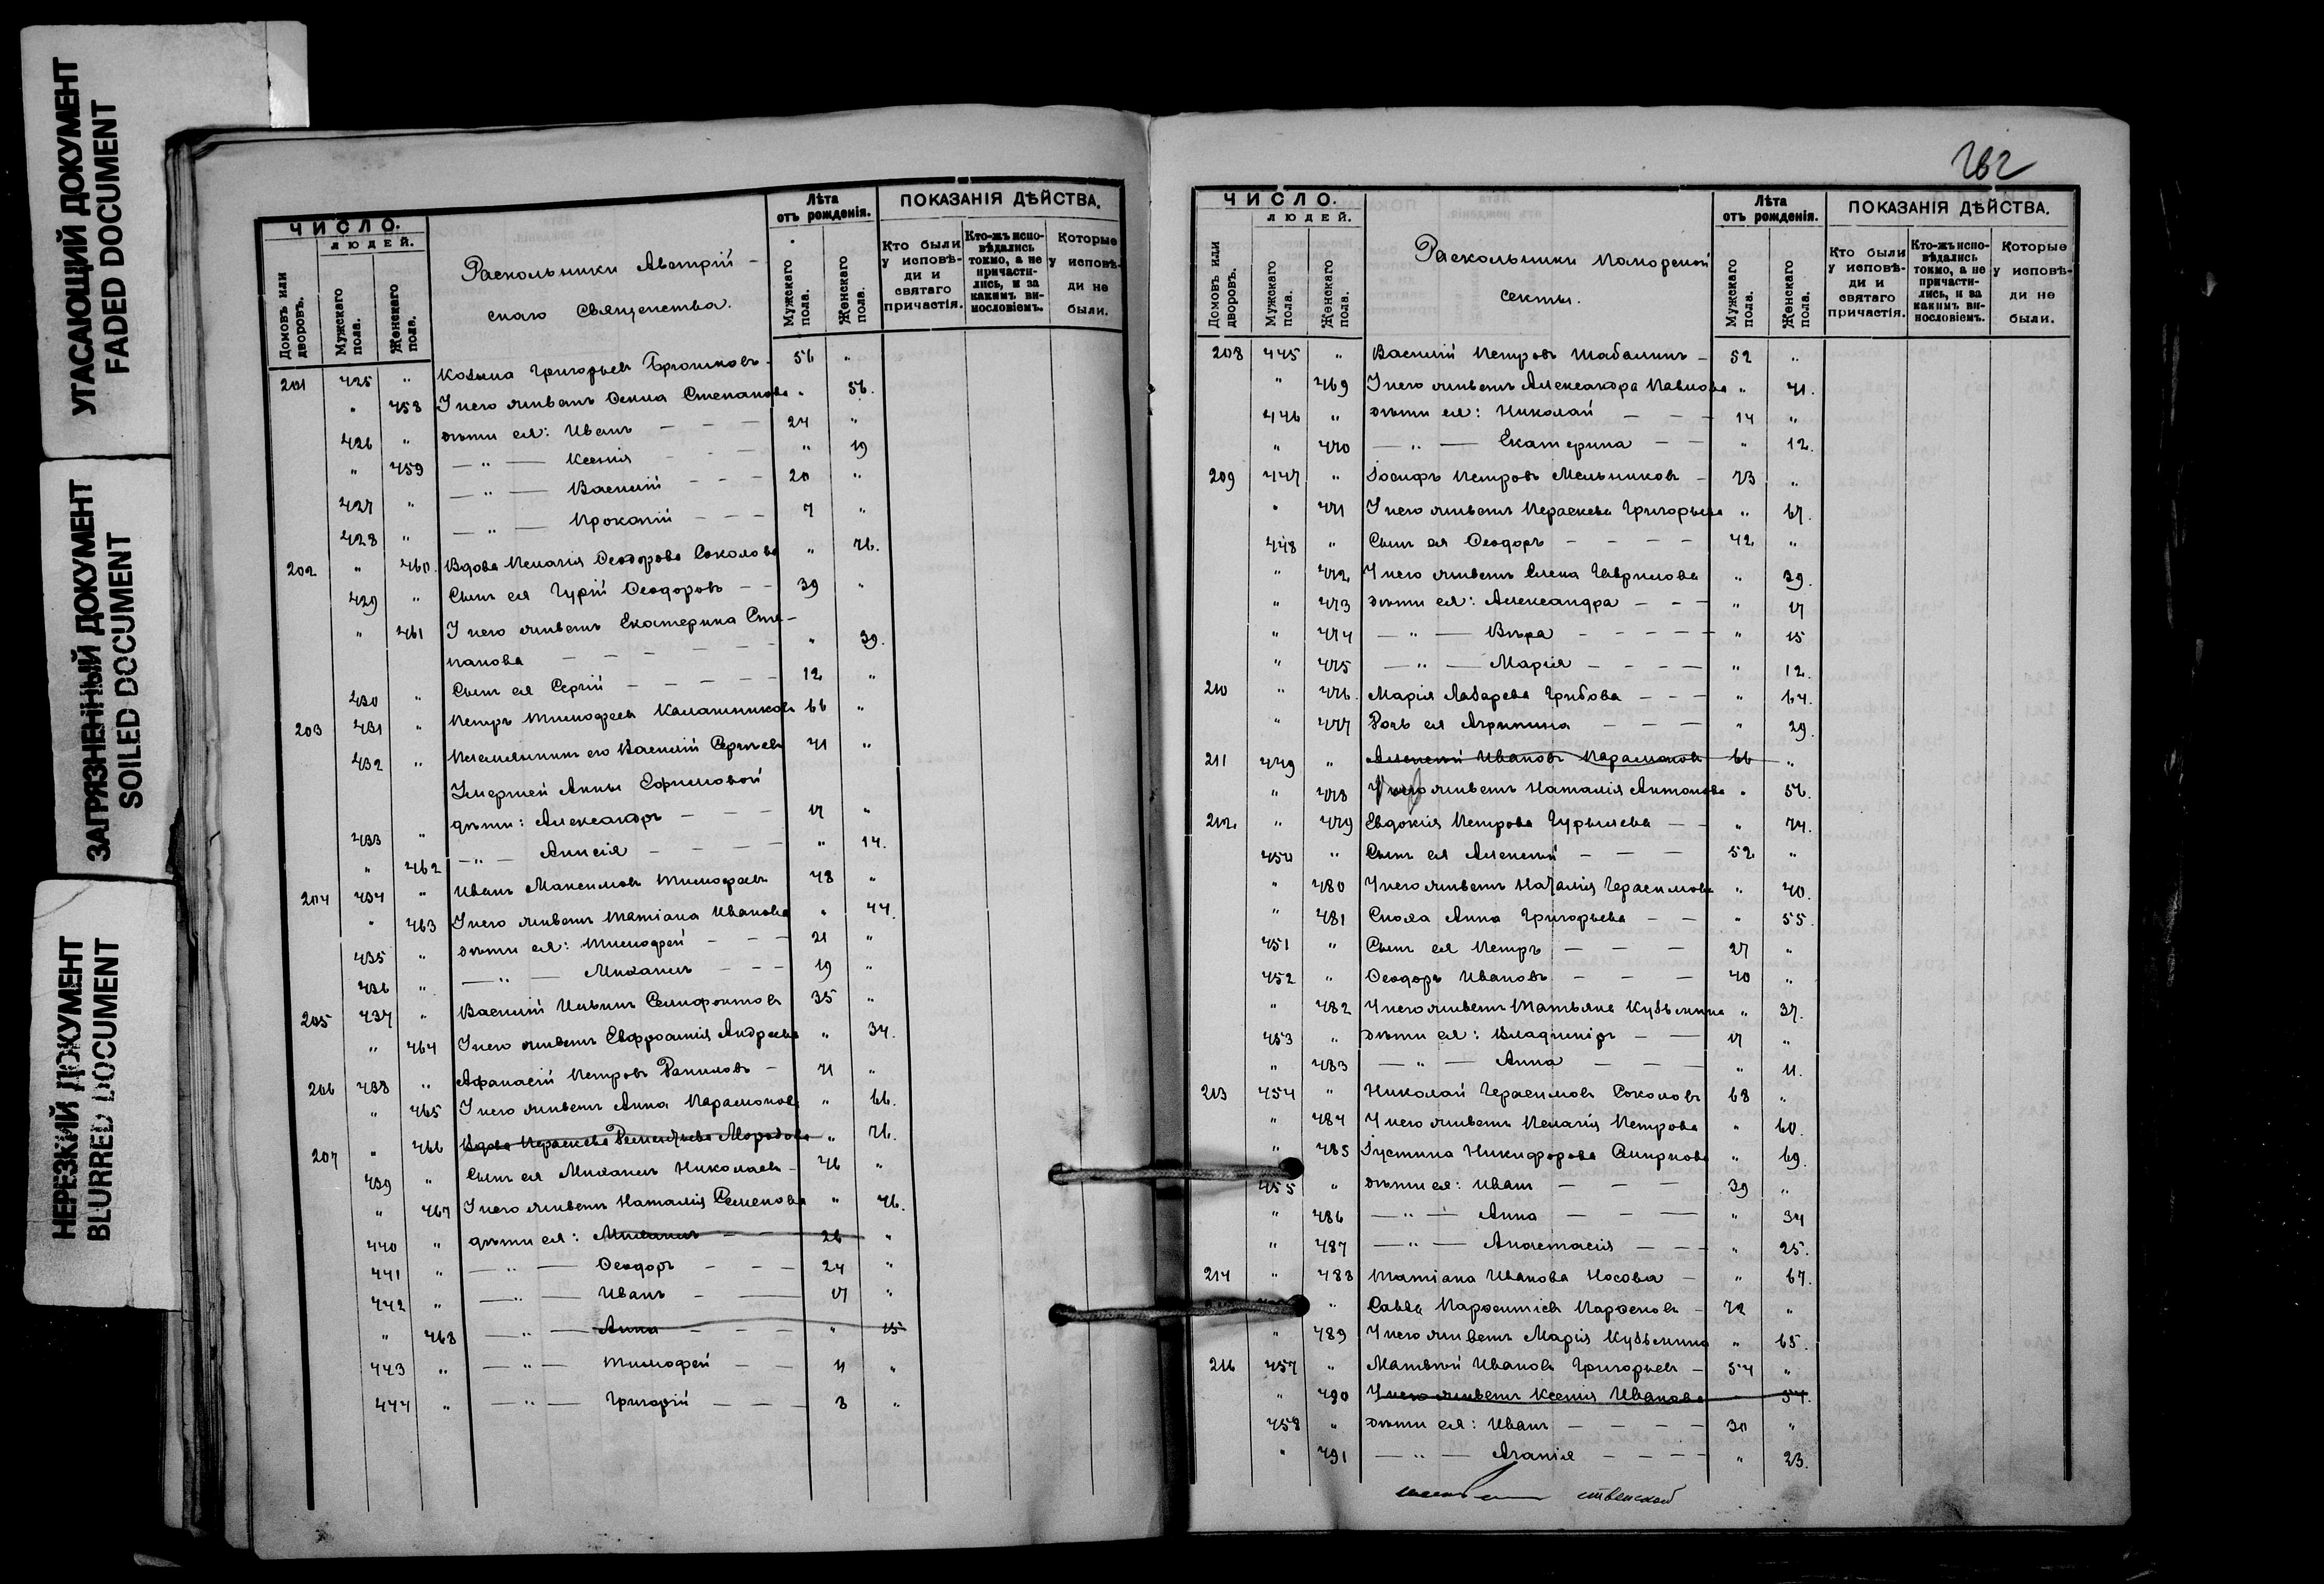 УГАСАЮЩИЙ ДОКУМЕНТ
FADED DOCUMENT
ЗАГРЯЗНЕННЫЙ ДОКУМЕНТ
SOILED DOCUMENT
НЕРЕЗКИЙ ДОКУМЕНТ
BLURRED DOCUMENT
ЧИСЛО.
ЛЮДЕЙ.
Домовъ или дворовъ.
Мужскаго пола.
Женскаго пола.
Раскольники Австрій-
скаго Священства.
Лѣта
отъ рожденія.
Мужскаго пола.
Женскаго пола.
ПОКАЗАНІЯ ДѢЙСТВА.
Кто были у исповѣ-ди и святаго причастія.
Кто-жъ испо-вѣдались токмо, а не причасти-лись, и за какимъ ви-нословіемъ.
Которые у исповѣ-ди не были.
201 425 " Козьма Григорьевъ 56 "
" 458 У него живетъ Ѳекла Степанова " 56.
426 " дѣти ея: Иванъ — — — 24 "
" 459 — " — Ксенія — — — " 19
427 " — " — Василій — — — 20 "
428 " — " — Прокопій — — — 7 "
202 " 460. Вдова Пелагія Ѳеодорова Соколова " 76.
429 " Сынъ ея Гурій Ѳеодоровъ — — 39 "
" 461 У него живетъ Екатерина Сте-
панова — — — — — — " 39.
430 " Сынъ ея Сергій — — — — — 12 "
203 431 " Петръ Тимофеевъ Калашниковъ 66 "
432 " Племянникъ его Василій Сергѣевъ 41 "
Умершей Анны Ефимовой
433 " дѣти: Александръ — — — 17 "
" 462 — " — Анисія — — — — " 14.
204 434 " Иванъ Максимовъ Тимофеевъ 48 "
" 463 У него живетъ Татіана Иванова " 44.
435 " дѣти ея: Тимофей — — — 21 "
436 " — " — Михаилъ — — — 19 "
205 437 " Василій Ильинъ 35 "
" 464 У него живетъ Евфросинія Андреева " 34.
206 438 " Афанасій Петровъ Даниловъ — 71 "
" 465 У него живетъ Анна Парамонова " 66.
207 " 466 Вдова Параскева Морозова " 76.
439 " Сынъ ея Михаилъ Николаевъ — 46 "
" 467 У него живетъ Наталія Семенова " 46.
440 " дѣти ея: Михаилъ — — 26 "
441 " — " — Ѳеодоръ — — — 24 "
442 " — " — Иванъ — — 17 "
" 468 — " — Анна — — — " 15
443 " — " — Тимофей — — 11 "
444 " — " — Григорій — — — 8 "
262
ЧИСЛО.
ЛЮДЕЙ.
Домовъ или дворовъ.
Мужскаго пола.
Женскаго пола.
Раскольники Поморской
секты.
Лѣта
отъ рожденія.
Мужскаго пола.
Женскаго пола.
ПОКАЗАНІЯ ДѢЙСТВА.
Кто были у исповѣ-ди и святаго причастія.
Кто-жъ испо-вѣдались токмо, а не причасти-лись, и за какимъ ви-нословіемъ.
Которые у исповѣ-ди не были.
208 445 " Василій Петровъ Шабалинъ — 52 "
" 469 У него живетъ Александра Павлова " 41.
446 " дѣти ея: Николай — — — 14 "
" 470 — " — Екатерина — — " 12.
209 447 " Іосифъ Петровъ Мельниковъ — 73 "
" 471 У него живетъ Параскева Григорьева " 67.
448 " Сынъ ея Ѳеодоръ — — — — 42 "
" 472 У него живетъ Елена Гаврилова " 39.
" 473 дѣти ея: Александра — — — " 17
" 474 — " — Вѣра — — — — — " 15
" 475 — " — Марія — — — — " 12.
210 " 476. Марія Лазарева Грибова — — — " 64.
" 477 Дочь ея Агрипина — — — " 29.
211 449 " Алексѣй Ивановъ Парамоновъ 66 "
" 478 У него живетъ Наталія Антонова " 56.
212 " 479 Евдокія Петрова Гурылева — — " 74.
450 " Сынъ ея Алексѣй — — — 52 "
" 480 У него живетъ Наталія Герасимова " 40.
" 481 Сноха Анна Григорьева — — " 55.
451 " Сынъ ея Петръ — — — 27 "
452 " Ѳеодоръ Ивановъ — — — 40 "
" 482 У него живетъ Татьяна Кузьмина " 37.
453 " дѣти ея: Владиміръ — — 17 "
" 483 — " — Анна — — — " 11.
213 454 " Николай Герасимовъ Соколовъ 68 "
" 484 У него живетъ Пелагія Петрова " 60.
" 485 Іустина Никифорова Смирнова " 69.
455 " дѣти ея: Иванъ — — — 39 "
" 486 — " — Анна — — — " 34
" 487 — " — Анастасія — — " 25.
214 " 488 Татіана Иванова Носова — " 67.
" Савва Парфентіевъ Парфеновъ — 72 "
" 489 У него живетъ Марія Кузьмина " 65.
216 457 " Матвѣй Ивановъ Григорьевъ — 54 "
" 490 У него живетъ Ксенія Иванова " 54.
458 " дѣти ея: Иванъ — — — — 30 "
" 491 — " — Агапія — — — — " 23.
ственской